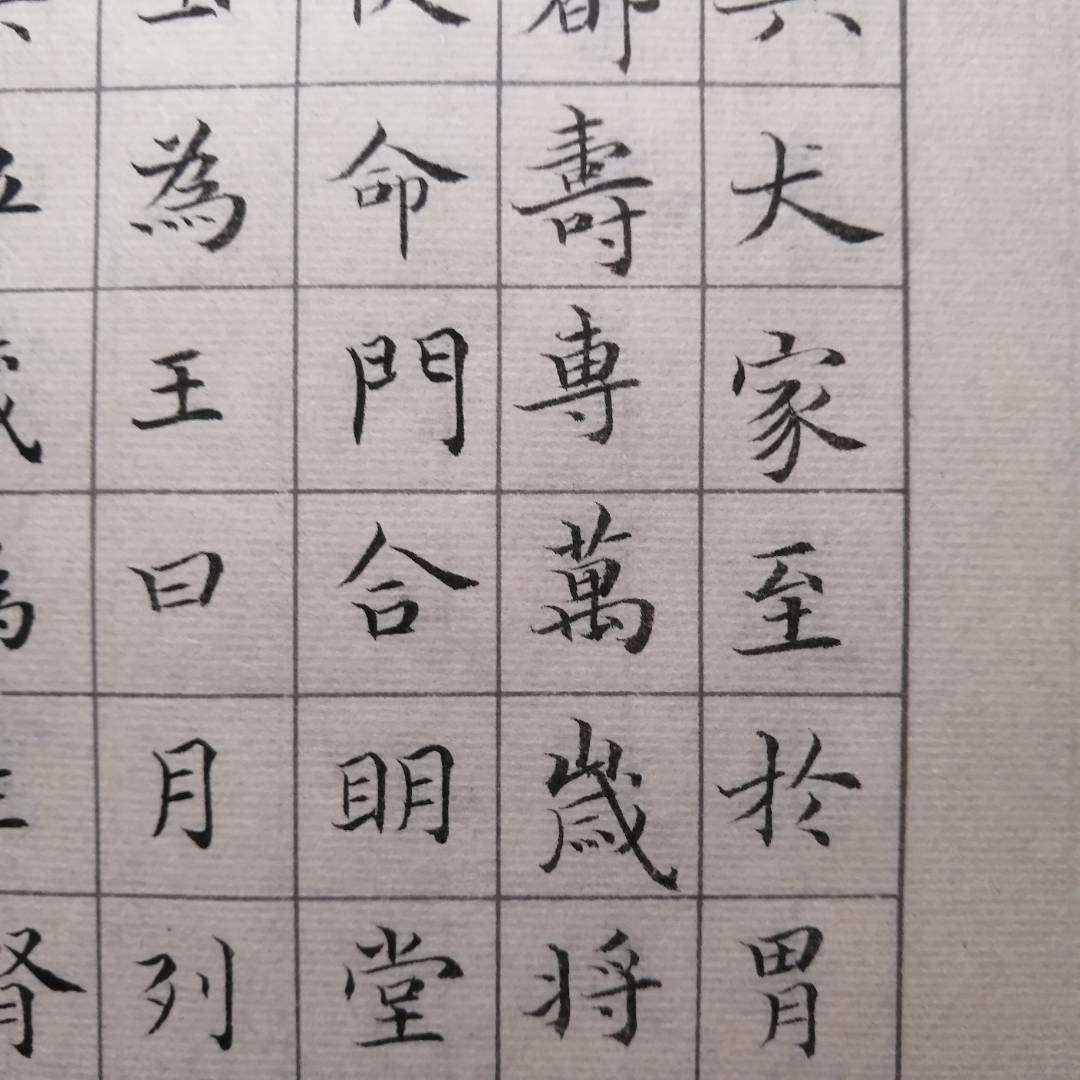 大家至於胃
都壽專萬歲將
命門合眀堂
為王日月列